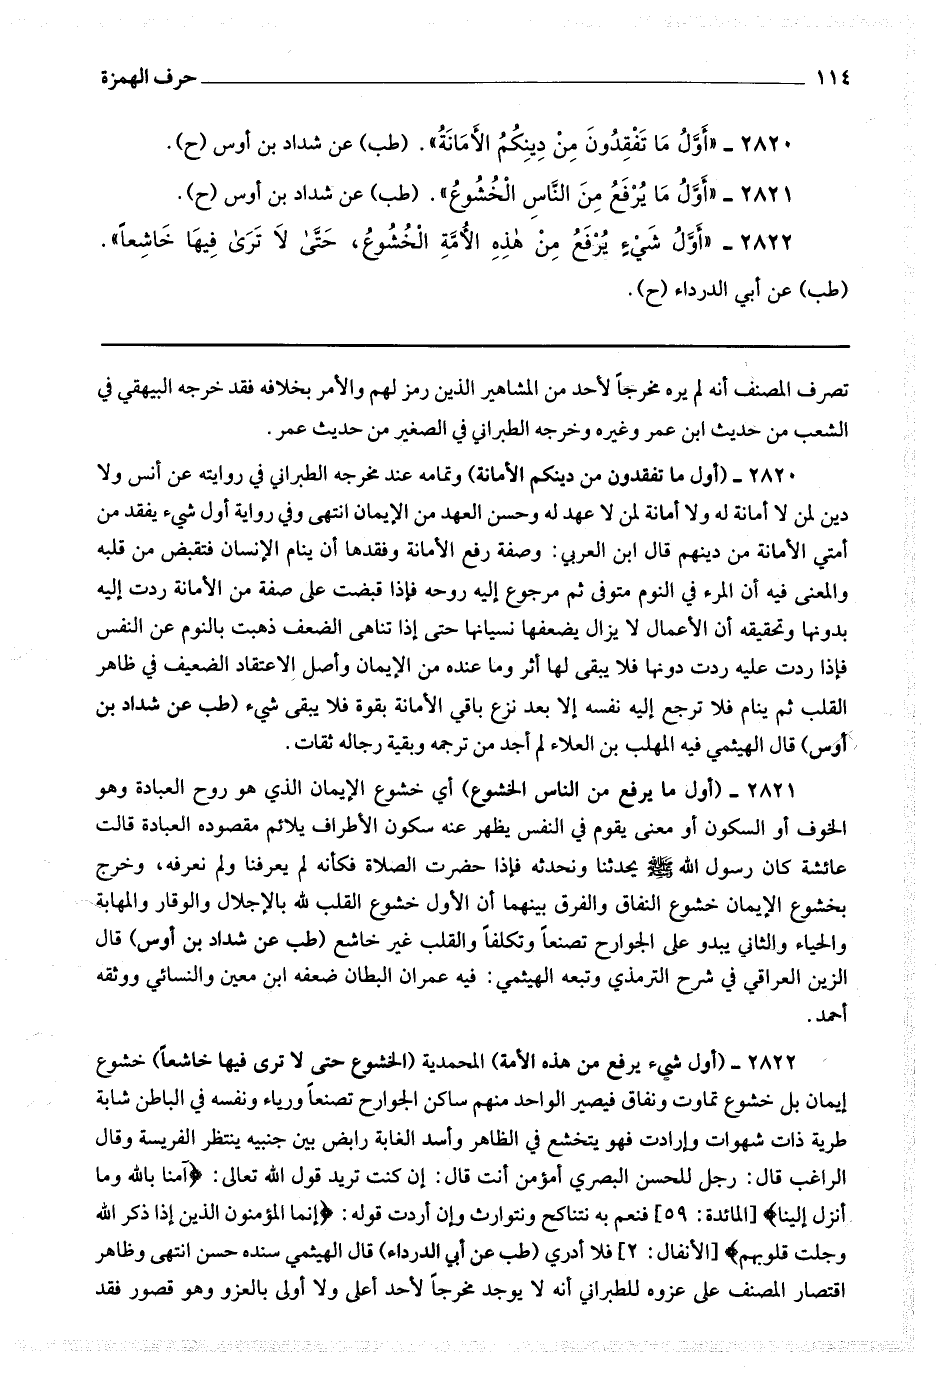 ١١٤ حرف الهمزة
٢٨٢٠ ـ «أَوَّلُ مَا تَفْقِدُونَ مِنْ دِينِكُمُ الأَمَانَةُ». (طب) عن شداد بن أوس (ح).
٢٨٢١ ـ «أَوَّلُ مَا يُرْفَعُ مِنَ النَّاسِ الْخُشُوعُ». (طب) عن شداد بن أوس (ح).
٢٨٢٢ ـ «أَوَّلُ شَيْءٍ يُرْفَعُ مِنْ هٰذِهِ الأُمَّةِ الْخُشُوعُ، حَتَّىٰ لاَ تَرَىٰ فِيهَا خَاشِعاً».
(طب) عن أبي الدرداء (ح).
تصرف المصنف أنه لم يره مخرجاً لأحد من المشاهير الذين رمز لهم والأمر بخلافه فقد خرجه البيهقي في
الشعب من حديث ابن عمر وغيره وخرجه الطبراني في الصغير من حديث عمر.
٢٨٢٠ ـ (أول ما تفقدون من دينكم الأمانة) وتمامه عند مخرجه الطبراني في روايته عن أنس ولا
دين لمن لا أمانة له ولا أمانة لمن لا عهد له وحسن العهد من الإيمان انتهى وفي رواية أول شيء يفقد من
أمتي الأمانة من دينهم قال ابن العربي: وصفة رفع الأمانة وفقدها أن ينام الإنسان فتقبض من قلبه
والمعنى فيه أن المرء في النوم متوفى ثم مرجوع إليه روحه فإذا قبضت على صفة من الأمانة ردت إليه
بدونها وتحقيقه أن الأعمال لا يزال يضعفها نسيانها حتى إذا تناهى الضعف ذهبت بالنوم عن النفس
فإذا ردت عليه ردت دونها فلا يبقى لها أثر وما عنده من الإيمان وأصل الاعتقاد الضعيف في ظاهر
القلب ثم ينام فلا ترجع إليه نفسه إلا بعد نزع باقي الأمانة بقوة فلا يبقى شيء (طب عن شداد بن
أوس) قال الهيثمي فيه المهلب بن العلاء لم أجد من ترجمه وبقية رجاله ثقات.
٢٨٢١ ـ (أول ما يرفع من الناس الخشوع) أي خشوع الإيمان الذي هو روح العبادة وهو
الخوف أو السكون أو معنى يقوم في النفس يظهر عنه سكون الأطراف يلائم مقصوده العبادة قالت
عائشة كان رسول الله ﷺ يحدثنا ونحدثه فإذا حضرت الصلاة فكأنه لم يعرفنا ولم نعرفه، وخرج
بخشوع الإيمان خشوع النفاق والفرق بينهما أن الأول خشوع القلب لله بالإجلال والوقار والمهابة
والحياء والثاني يبدو على الجوارح تصنعاً وتكلفاً والقلب غير خاشع (طب عن شداد بن أوس) قال
الزين العراقي في شرح الترمذي وتبعه الهيثمي: فيه عمران البطان ضعفه ابن معين والنسائي ووثقه
أحمد.
٢٨٢٢ ـ (أول شيء يرفع من هذه الأمة) المحمدية (الخشوع حتى لا ترى فيها خاشعاً) خشوع
إيمان بل خشوع تماوت ونفاق فيصير الواحد منهم ساكن الجوارح تصنعاً ورياء ونفسه في الباطن شابة
طرية ذات شهوات وإرادت فهو يتخشع في الظاهر وأسد الغابة رابض بين جنبيه ينتظر الفريسة وقال
الراغب قال: رجل للحسن البصري أمؤمن أنت قال: إن كنت تريد قول الله تعالى: ﴿آمنا بالله وما
أنزل إلينا﴾ [المائدة: ٥٩] فنعم به نتناكح ونتوارث وإن أردت قوله: ﴿إنما المؤمنون الذين إذا ذكر الله
وجلت قلوبهم﴾ [الأنفال: ٢] فلا أدري (طب عن أبي الدرداء) قال الهيثمي سنده حسن انتهى وظاهر
اقتصار المصنف على عزوه للطبراني أنه لا يوجد مخرجاً لأحد أعلى ولا أولى بالعزو وهو قصور فقد